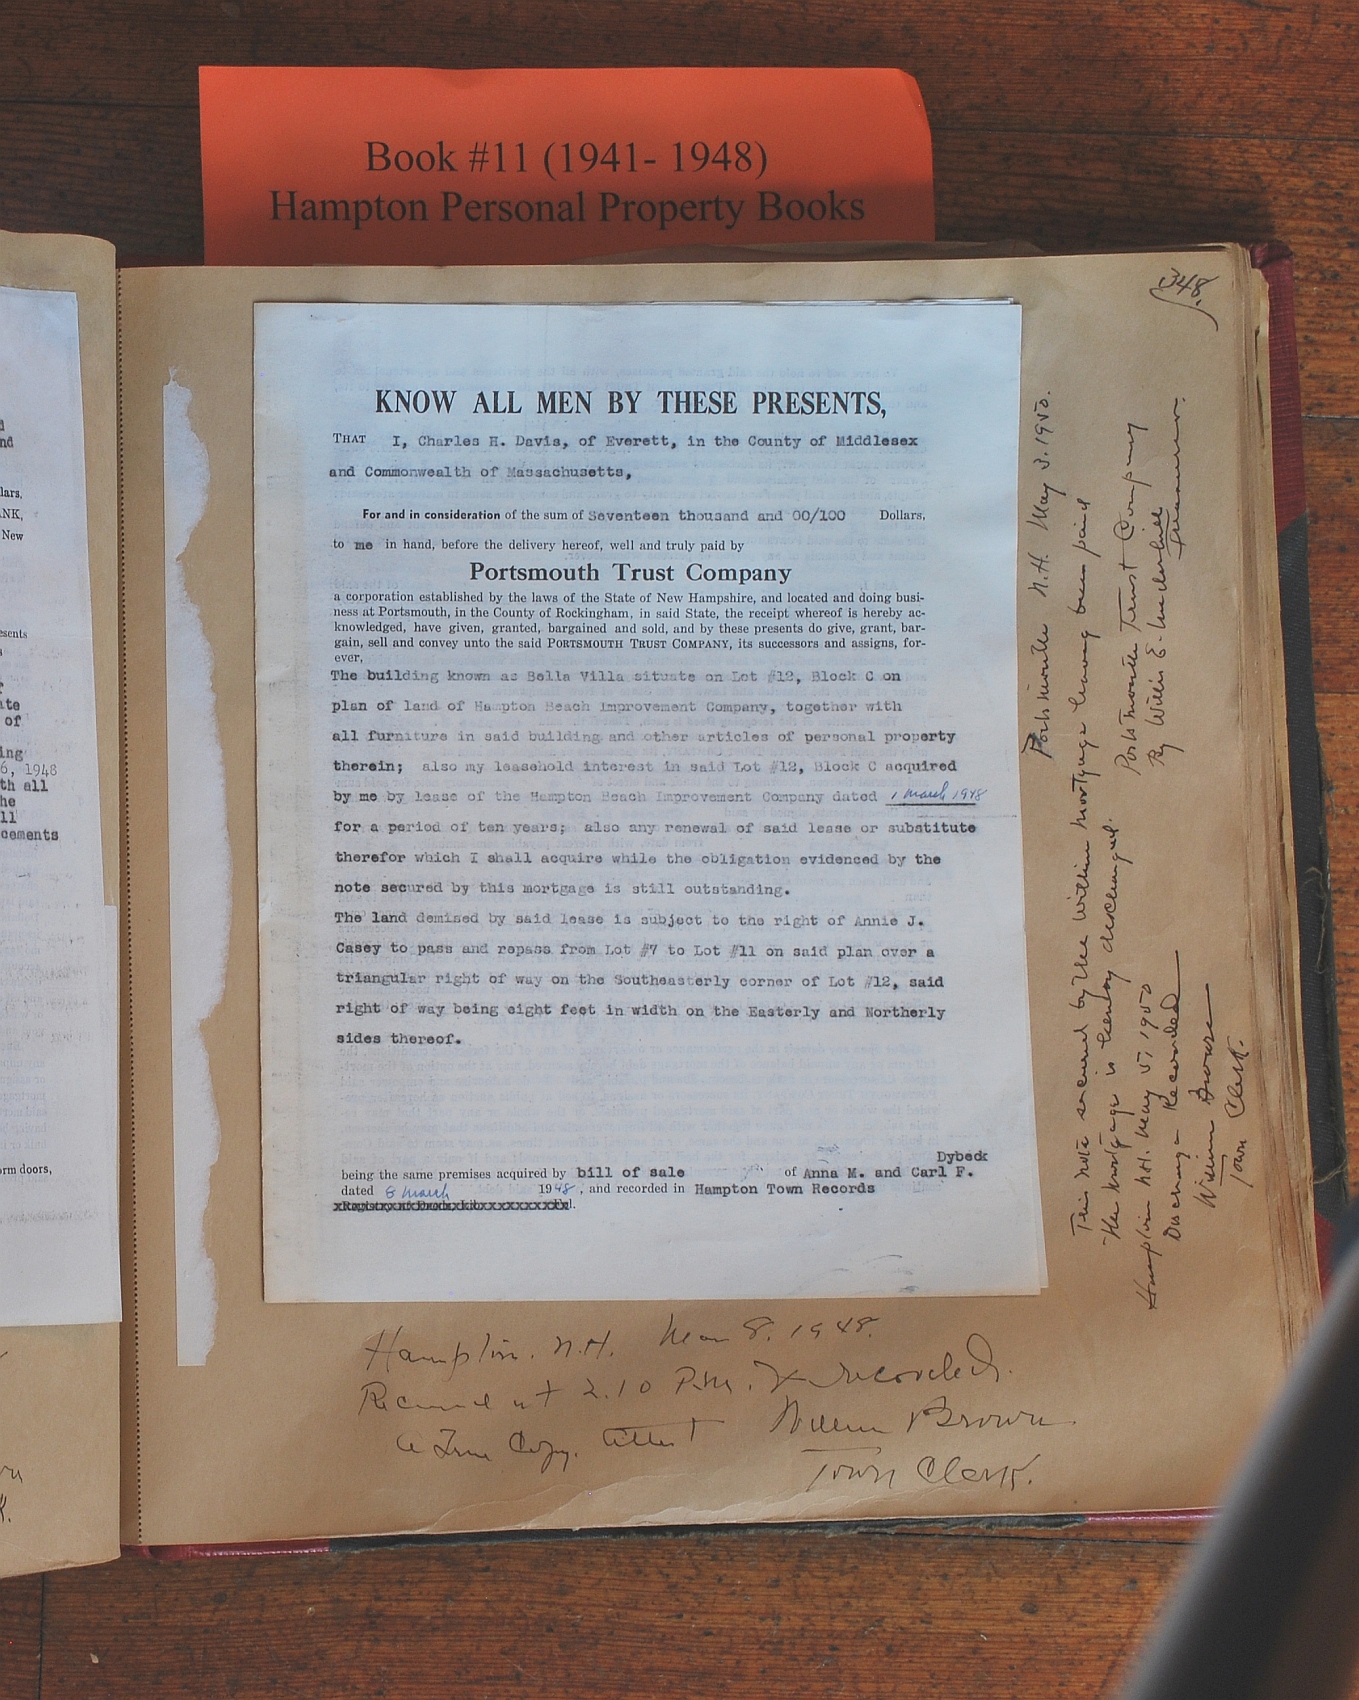 Book #11 (1941- 1948)
Hampton Personal Property Books
348.
KNOW ALL MEN BY THESE PRESENTS,
THAT I, Charles H. Davis, of Everett, in the County of Middlesex
and Commonwealth of Massachusetts,
For and in consideration of the sum of Seventeen thousand and 00/100 Dollars,
to me in hand, before the delivery hereof, well and truly paid by
Portsmouth Trust Company
a corporation established by the laws of the State of New Hampshire, and located and doing busi-
ness at Portsmouth, in the County of Rockingham, in said State, the receipt whereof is hereby ac-
knowledged, have given, granted, bargained and sold, and by these presents do give, grant, bar-
gain, sell and convey unto the said PORTSMOUTH TRUST COMPANY, its successors and assigns, for-
ever,
The building known as Bella Villa situate on Lot #12, Block C on
plan of land of Hampton Beach Improvement Company, together with
all furniture in said building and other articles of personal property
therein; also my leasehold interest in said Lot #12, Block C acquired
by me by lease of the Hampton Beach Improvement Company dated 1 March 1948
for a period of ten years; also any renewal of said lease or substitute
therefor which I shall acquire while the obligation evidenced by the
note secured by this mortgage is still outstanding.
The land demised by said lease is subject to the right of Annie J.
Casey to pass and repass from Lot #7 to Lot #11 on said plan over a
triangular right of way on the Southeasterly corner of Lot #12, said
right of way being eight feet in width on the Easterly and Northerly
sides thereof.
Dybeck
being the same premises acquired by bill of sale of Anna M. and Carl F.
dated 8 March 1948, and recorded in Hampton Town Records
Hampton. N.H. Mar 8. 1948.
Received at 2.10 P.M. & recorded.
A True Copy. Attest William Brown
Town Clerk.
Portsmouth N.H. May 3. 1950.
This note secured by the within mortgage having been paid
the mortgage is hereby discharged.
Portsmouth Trust Company
By Willis E. Underhill
Treasurer.
Hampton N.H. May 5, 1950
Discharge Recorded
William Brown
Town Clerk.
nd
lars,
ANK,
New
esents
ate
of
ing
6, 1948
th all
he
ll
cements
orm doors,